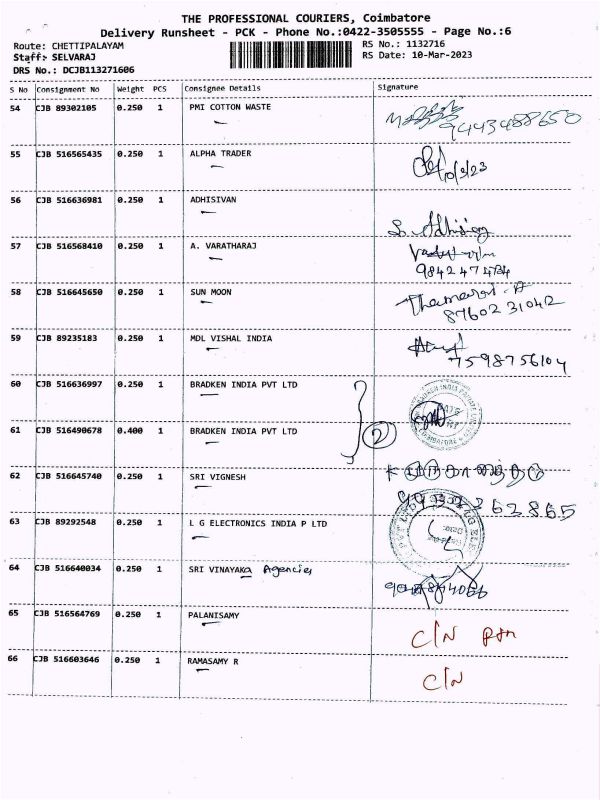 THE PROFESSIONAL COURIERS, Coimbatore
Delivery Runsheet - PCK - Phone No.:0422-3505555 - Page No.:6
Route: CHETTIPALAYAM RS No.: 1132716
Staff: SELVARAJ RS Date: 10-Mar-2023
DRS No.: DCJB113271606
S No Consignment No Weight PCS Consignee Details Signature
54 CJB 89302105 0.250 1 PMI COTTON WASTE
9443488650
55 CJB 516565435 0.250 1 ALPHA TRADER
10/3/23
56 CJB 516636981 0.250 1 ADHISIVAN
S. Adhisivan
57 CJB 516568410 0.250 1 A. VARATHARAJ
58 CJB 516645650 0.250 1 SUN MOON
87602 31042
59 CJB 89235183 0.250 1 MDL VISHAL INDIA
7598756104
60 CJB 516636997 0.250 1 BRADKEN INDIA PVT LTD
61 CJB 516490678 0.400 1 BRADKEN INDIA PVT LTD
2
62 CJB 516645740 0.250 1 SRI VIGNESH
63 CJB 89292548 0.250 1 L G ELECTRONICS INDIA P LTD
64 CJB 516640034 0.250 1 SRI VINAYAKA Agencies
65 CJB 516564769 0.250 1 PALANISAMY
C/N
66 CJB 516603646 0.250 1 RAMASAMY R
C/N